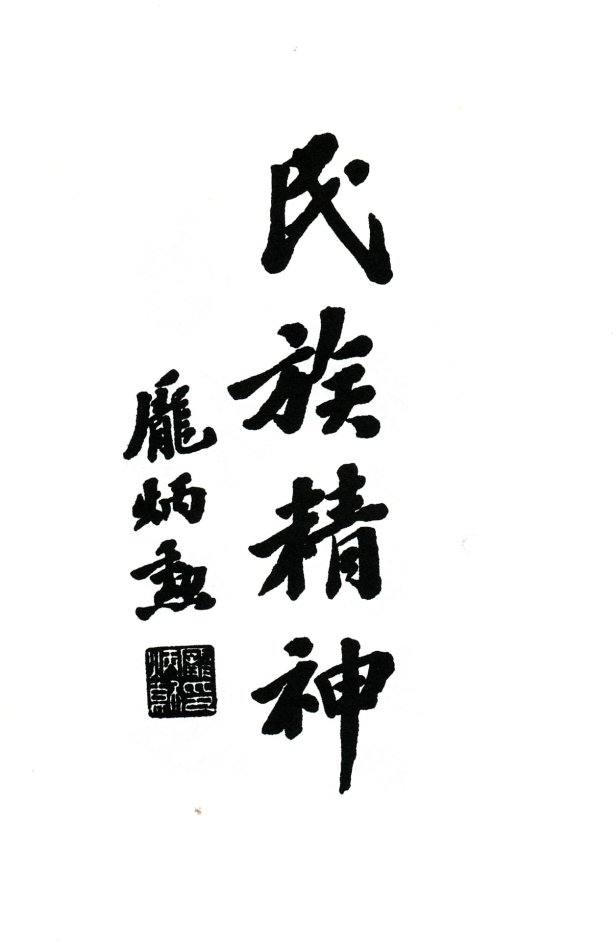 民族精神
龐炳勳